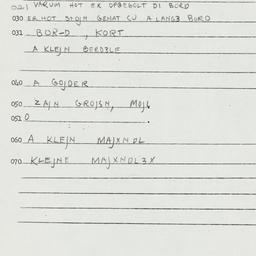 021 VARUM HOT ER OPGEGOLT DI BORD
030 ER HOT STEJN GEHAT CU A LANGE BORD
031 BORD, KORT
A KLEJN BERDELE
040 A GOJDER
050 ZAJN GROJSN, MOJL
051 O
060 A KLEJN MAJXNDL
070 KLEJNE MAJXNDL3X